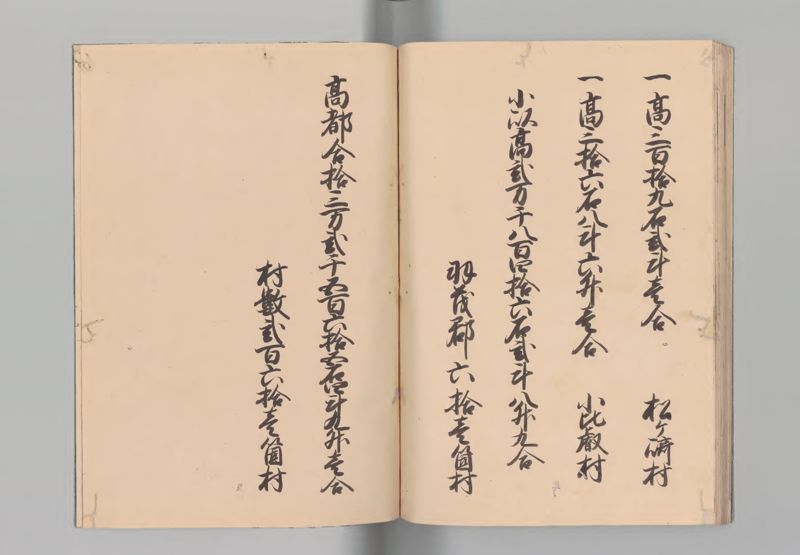 一高三百拾九石弐斗壱合 松ヶ崎村
一高三拾六石八斗六升壱合 小比叡村
小以高弐万千八百四拾六石弐斗八升九合
羽茂郡六拾壱箇村
高都合拾三万弐千五百六拾五石四斗九升壱合
村數弐百六拾壱箇村